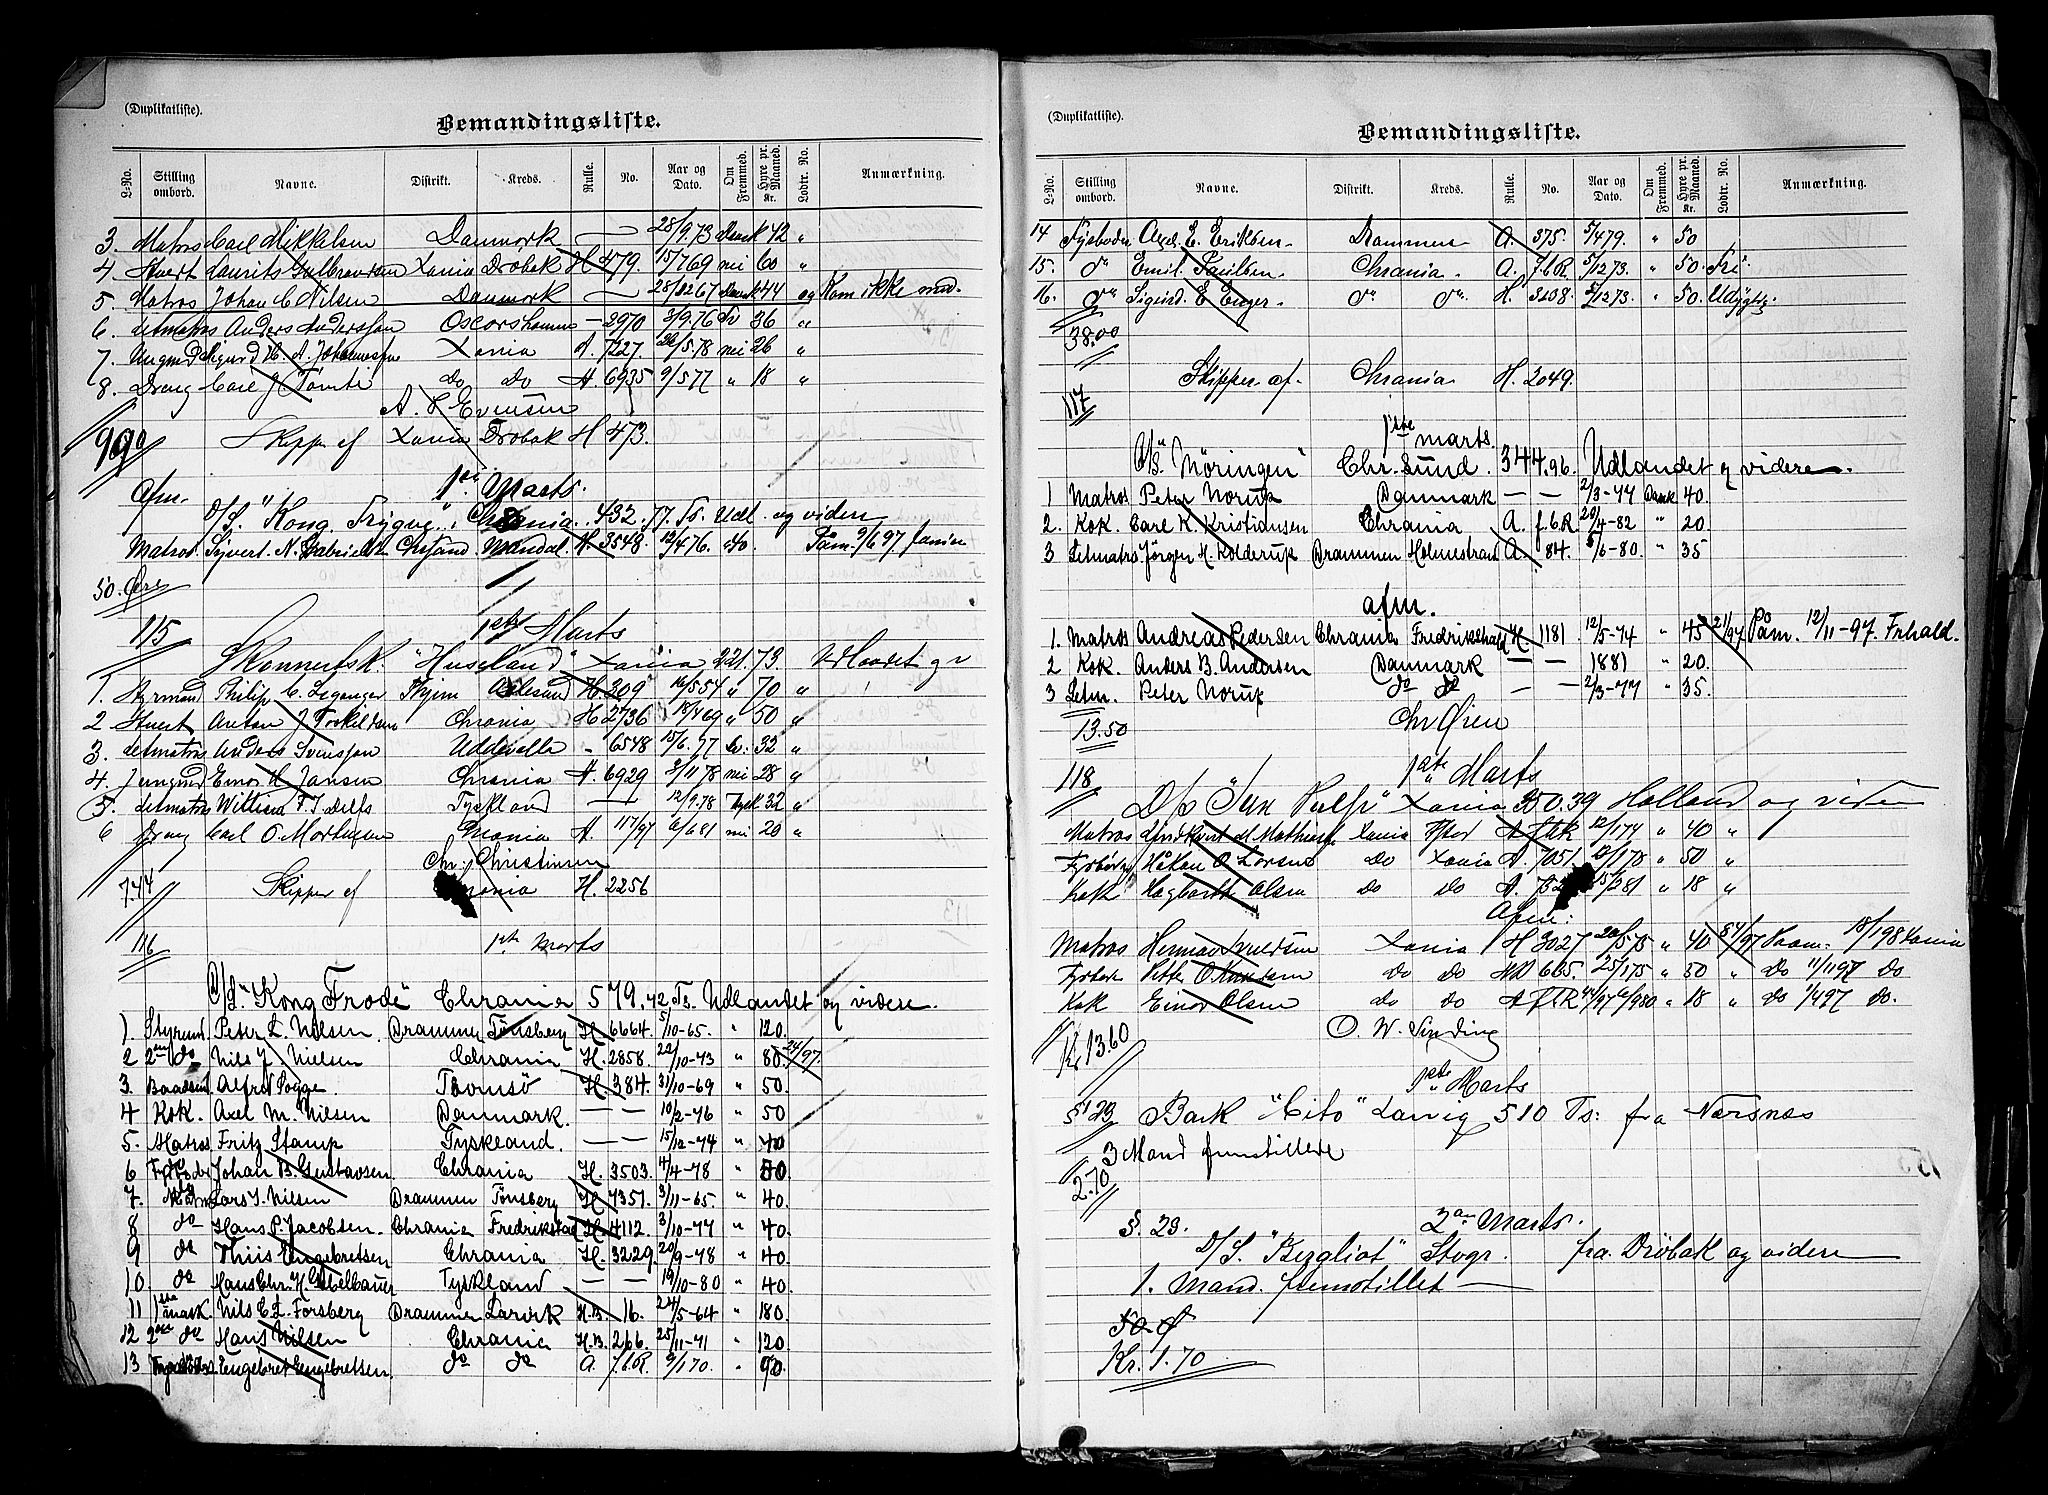 (Duplikatliste).
Bemandingsliste.
L-No. Stilling ombord. Navne. Distrikt. Kreds. Rulle. No. Aar og Dato. Om Fremmed. Hyre pr. Maaned. Kr. Lodtr. No. Anmærkning.
3. Matros Carl Mikkelsen Danmark — 28/9.73 Dansk 42 "
4. Stuert Laurits Gulbrandsen Xania Drøbak H 479. 15/769 nei 60 "
5. Matros Johan C Nilsen Danmark — 28/1267 Dansk 44 og Kom ikke med.
6. Letmatros Anders Anderssen Oscarshamn — 2970 3/9.76 Sv 36 "
7. Ungmd Sigurd H. A. Johannesen Xania A. 7227. 26/5.78 nei 26 "
8. Dreng Carl J. Tømte do do A. 6935 9/577 " 18 "
A. L Evensen
990 Skipper af Xania Drøbak H 473.
1ste Marts.
Afm. D/S. "Kong Trygve", Chrania. 432.77. Ts. Udl. og videre
Matros. Sigvert. N. Gabrielsen Chrsand Mandal. H. 3548. 12/476. 40. Påm. 9/697 Xania
50. Øre
115 1ste Marts
Skonnertsk. "Huseland" Xania 221.73. Udlandet og v
1. Styrmand Philip C. Leganger Thjem Aalesund H. 209 12/554 " 70 "
2 Stuert Anton J. Torkildsen Chrania H 2736 18/469 " 50 "
3. Letmatros Anders Svensson Uddevalla - 6548 15/6.77 Sv. 32 "
4. Jungmd Einar H. Jansen Chrania A. 6929 2/1178 nei 28 "
5. Letmatros William F. J. Delfs Tyskland — 12/9.78 Tysk 32 "
6 Dreng Carl O. Mortensen Chrania A. 117/97 6/681 nei 20 "
Chr. Christensen
7.44 Skipper af Chrania H. 2256
116 1ste Marts
D/S. "Kong Frode" Chrania 579.42 Ts. Udlandet og videre.
1. Styrmd. Peter L. Nilsen Drammen Tönsberg H. 6664. 5/10-65. " 120.
2 2den do Nils J. Nielsen Chrania H. 2858. 22/10-43 " 80. 24/97.
3. Baadsmd Alfred Sogge Tromsö H. 384. 31/10-69 " 50.
4 Kok. Axel M. Nilsen Danmark. — — 10/2-76 " 50
5. Matros Fritz Stamp Tyskland. — — 15/12-74 " 40
6 Fyrböder Johan B. Gustavsen Chrania H. 3503. 4/4-78 " 50.
7. Matros Lars J. Nilsen Drammen Tönsberg H. 7351. 3/11-65. " 40.
8 do Hans P. Jacobsen. Chrania Fredrikstad H. 4112. 3/10-77 " 40.
9 do Thiis Engebretsen Chrania H. 3229. 20/9-78 " 40.
10. do Hans Chr. H. Gabelbauer Tyskland — — 19/10-80 " 40.
11 1ste mask. Nils C. L. Forsberg Drammen Larvik H.B. 16. 24/5-64 " 180
12 2den do Hans Nilsen Chrania H.B. 266. 25/11-71 " 120
13 Fyrböder Engebret Engebretsen. do do A. f.b.R. 9/170. " 90
(Duplikatliste).
Bemandingsliste.
L-No. Stilling ombord. Navne. Distrikt. Kreds. Rulle. No. Aar og Dato. Om Fremmed. Hyre pr. Maaned. Kr. Lodtr. No. Anmærkning.
14 Fyrböder Axel. E. Eriksen. Drammen A. 375. 5/479. " 50
15. do Emil. Paulsen. Chrania. A. f.b.R. 5/1273. " 50. Fri.
16. do Sigurd. E Enger. do do. H. 3208. 5/1273. " 50. Udygtig.
38.00
Skipper af. Chrania H. 2049.
117 1ste marts.
D/S. "Nöringen" Chr. Sund. 344.96. Udlandet og videre.
1 Matros Peter Norup Danmark — — 2/3-77 Dansk 40.
2. Kok. Carl K. Kristiansen Chrania A. f.b.R. 20/4-82 " 20.
3 Letmatros Jörgen H. Kolderup Drammen Holmestrand A. 84. 5/6-80. " 35
afm.
1. Matros Andreas Pedersen Chrania Fredrikshald H. 1181 12/5-74 " 45 21/97 Paam. 12/11-97. Frhald.
2 Kok. Anders B. Andersen Danmark — — 1881 " 20.
3 Letm. Peter Norup do do — — 2/3-77 " 35.
13.50 Chr Øien
118 1ste Marts
D/S "Sex Pulp" Xania 350.39 Holland og videre
Matros M. Mathiesen Xania A flR 12/174 " 40 "
Fyrböder Håkon O Larsen do Xania A. 7051. 12/178 " 50 "
Kok Hagbarth Olsen do do A. 15/281 " 18 "
Afm:
Matros Herman Xania H 3027 20/575 " 40 84/97 Paam. 18/198 Xania
Fyrböd. Peter O Knudsen do do 665. 25/175 " 50 " do 11/1197 do
Kok Einar Olsen do do A flR 4/97 6/980 " 18 " do 1/497 do.
O. W. Sinding
Kr. 13.60
1ste Marts
§ 23 Bark "Cito" Larvig 510 Ts: fra Nærsnæs
3 Mand fremstillede
2.70
§. 23. 2den Marts.
D/S. "Bergliot" Stvgr. fra Dröbak og videre
1. Mand. fremstillet —
50. Ø
Kr. 1.70